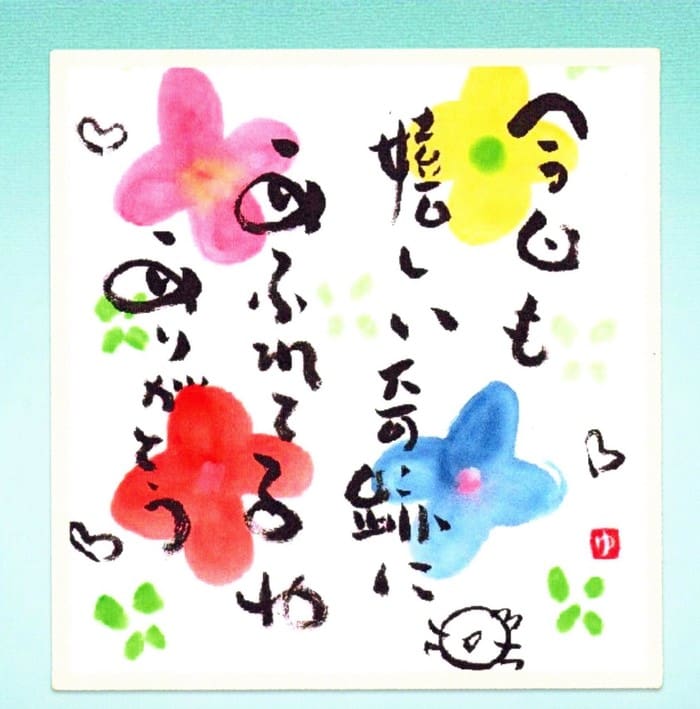 今日も
嬉しい奇跡に
あふれてるね
ありがとう
ゆ